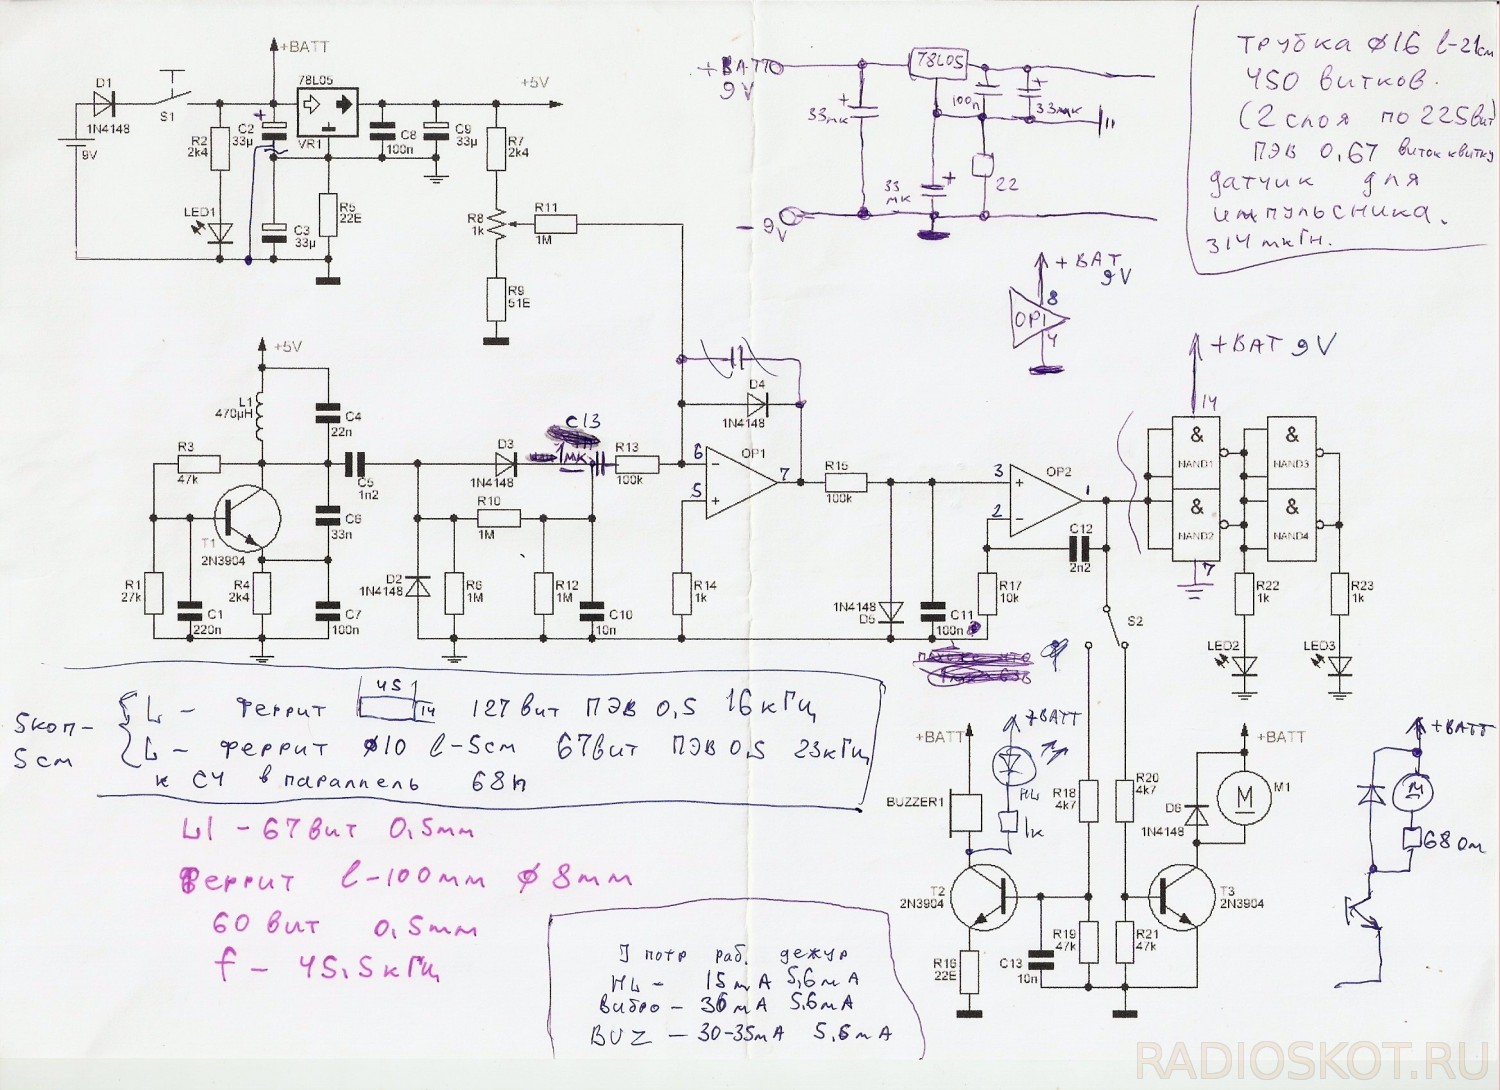 +BATT
D1
1N4148
S1
9V
R2
2k4
LED1
C2
33µ
78L05
VR1
C3
33µ
R5
22E
C8
100n
C9
33µ
+5V
R7
2k4
R8
1k
R9
51E
R11
1M
+ВАТТ
9V
78L05
33мк
100п
33мк
33
мк
22
- 9V
трубка ф16 l-21см
450 витков.
(2 слоя по 225вит)
ПЭВ 0,67 виток к витку
датчик для
импульсника.
314 мкГн.
+ВАТ
9V
8
OP1
4
+ВАТ 9V
+5V
L1
470µH
C4
22n
R3
47k
T1
2N3904
C5
1n2
C6
33n
R1
27k
C1
220n
R4
2k4
C7
100n
D3
1N4148
R10
1M
D2
1N4148
R6
1M
R12
1M
C10
10n
C13
1мк
R13
100k
D4
1N4148
6
5
OP1
7
R14
1k
R15
100k
1N4148
D5
C11
100n
3
2
OP2
1
C12
2n2
R17
10k
S2
14
&
NAND1
&
NAND2
7
&
NAND3
&
NAND4
R22
1k
R23
1k
LED2
LED3
5коп-
5см
L - феррит 45 14 127вит ПЭВ 0,5 16кГц
L - феррит ф10 l-5см 67вит ПЭВ 0,5 23кГц
к С4 в параллель 68п
L1 - 67вит 0,5мм
феррит l-100мм ф8мм
60вит 0,5мм
f - 45,5кГц
I потр раб. дежур
HL - 15мА 5,6мА
Вибро - 36мА 5,6мА
BUZ - 30-35мА 5,6мА
+BATT
BUZZER1
+ВАТТ
HL
1к
T2
2N3904
R16
22E
C13
10n
R18
4k7
R19
47k
R20
4k7
R21
47k
+BATT
D6
1N4148
M
M1
T3
2N3904
+ВАТТ
М
68 Ом
RADIOSKOT.RU